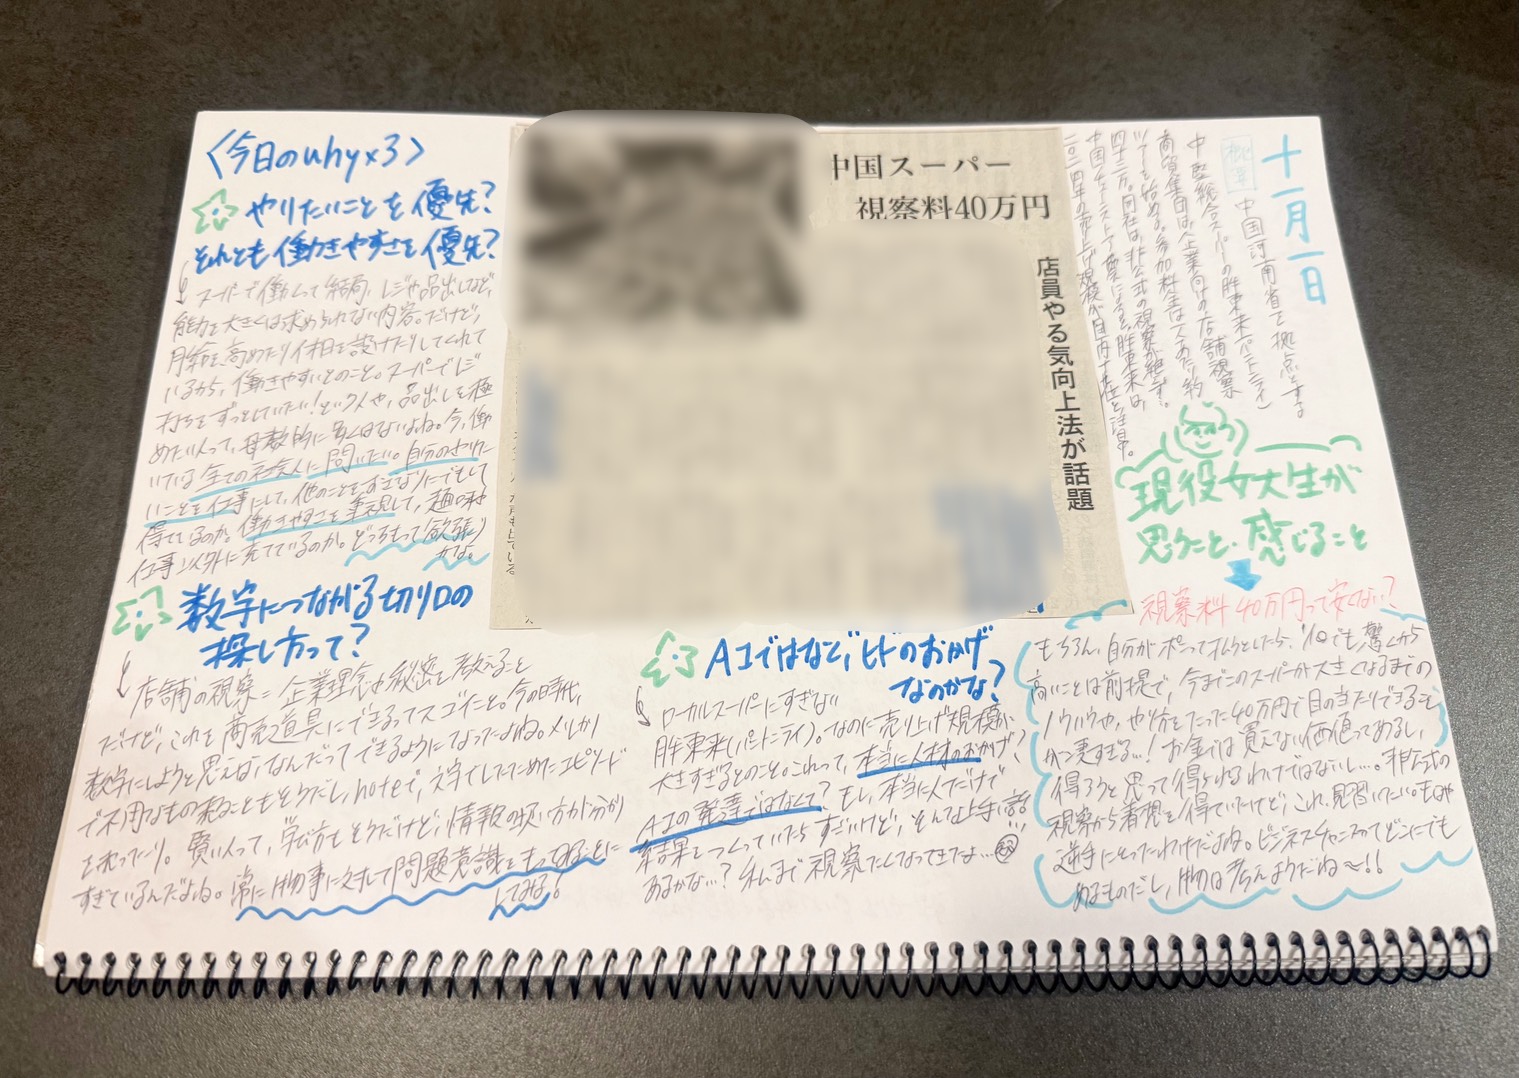 十一月一日
概要
中国河南省を拠点とする
中堅総合スーパーの胖東来(パントンライ)
商貿集団は、企業向けの店舗視察
ツアーを始める。参加料金は一人あたり約
四十三万。同社は、非公式の視察が絶えず。
中国チェーンストア
二〇二四年の売り上げ規模が国内
中国スーパー
視察料40万円
店員やる気向上法が話題
〈今日のwhy×3〉
やりたいことを優先?
それとも働きやすさを優先?
スーパーで働くって結局、レジや品出しなど、
能力を大きくは求められない内容。だけど、
月給を高めたり休日を設けたりしてくれて
いるから、働きやすいとのこと。スーパーでレジ
打ちをずっとしていたい!という人や、品出しを極
めたい人って、母数的に多くはないよね。今、働
いている全ての社会人に問いたい。自分のやりた
いことを仕事にして、他のことをすきなりにでもして
得ているのか。働きやすさを重視して、趣味や
仕事以外に充てているのか。どっちもって欲張り
かな。
数字につながる切り口の
探し方って?
店舗の視察=企業理念や秘密を教えること
だけど、これを商売道具にできるってスゴイこと。今の時代、
数字にしようと思えば、なんだってできるようになったよね。メルカリ
で不用なもの売ることもそうだし、noteで、文字でしたためたエピソード
を売ったり。賢い人って、学び方もそうだけど、情報の吸い方が分かり
すぎているんだよね。常に物事に対して問題意識をもってみることに
してみる!
AIではなく、ヒトのおかげ
なのかな?
ローカルスーパーにすぎない
胖東来(パントンライ)。なのに売り上げ規模が
大きすぎるとのこと。これって、本当に人材のおかげ?
AIの発達ではなくて?もし、本当に人だけで
結果をつくっていたらすごいけど、そんな上手い話
あるかな…?私まで視察したくなってきたよ…
現役女大生が
思うこと・感じること
視察料40万円って安くない?
もちろん、自分がポンって払うとしたら、1回でも驚くから
高いことは前提で、今までのスーパーが大きくなるまでの
ノウハウや、やり方をたった40万円で目の当たりできるこ
かつ凄すぎる…!お金では買えない価値ってあるし、
得ようと思って得られるわけではないし…。非公式の
視察から着想を得ていたけど、これ、見習いたいものは
逆手にとったわけだよね。ビジネスチャンスってどこにでも
あるものだし、物は考えようだね〜!!